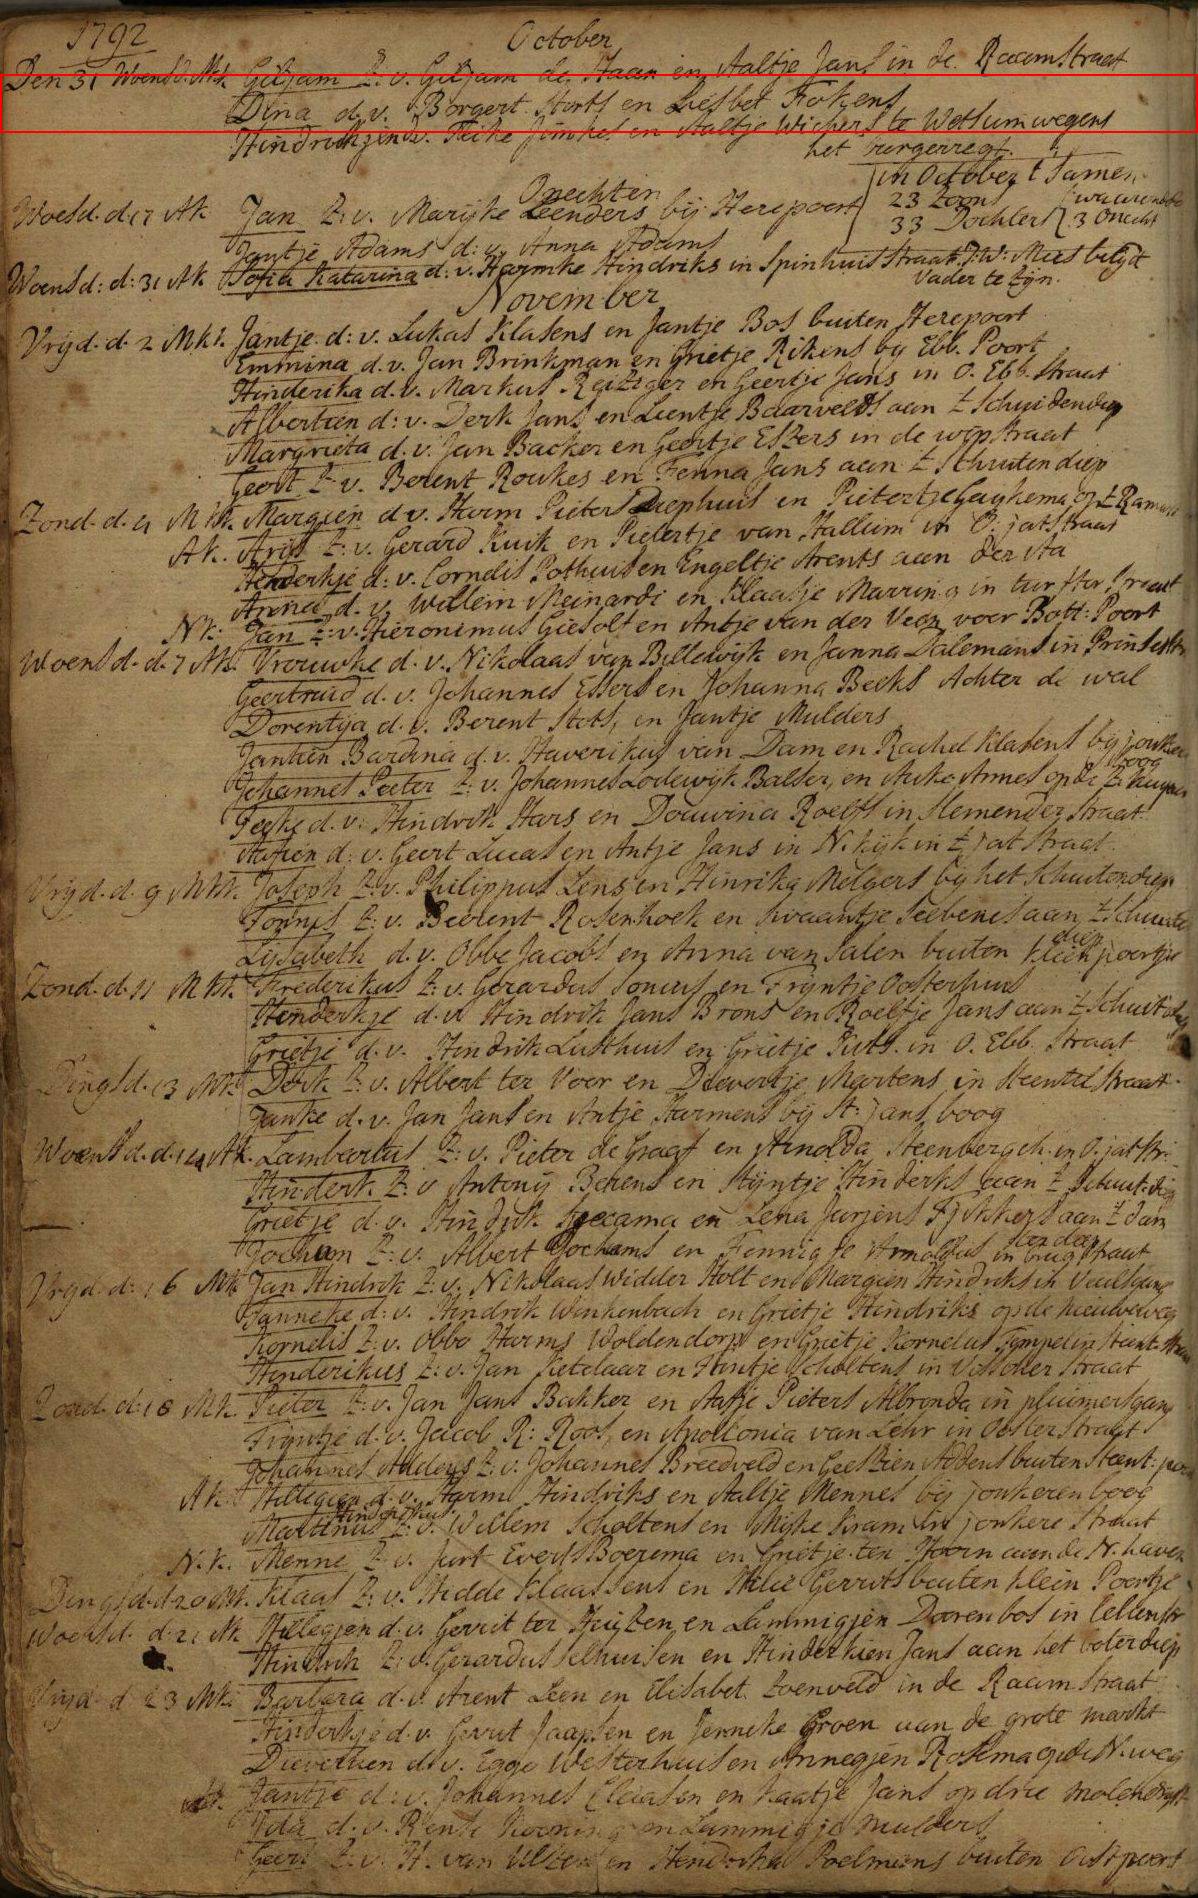 1792 October
Den 31 Woensd. Mk. Giljam Z: v. Giljam de Haan en Aaltje Jans in de Raamstraat
Dina d. v. Borgert Horts en Liesbet Fokens
Hindrikjen d. v. Heike Jimkes en Aaltje Wichers te Wetsum wegens
het burgerregt.
in October t Samen
Onechten 23 Zoons waaronder
Woesd. d. 17 Ak Jan Z: v. Marijke Leenders bij Herepoort 33 Dochters 3 Onecht
Jantje Adams d: v. Anna Adams
Woensd: d: 31 Ak Sofia Katarina d: v. Harmke Hindriks in Spinhuis Straat. J:W: Mees belijdt
Vader te zijn.
November
Vrijd. d. 2 Mkt. Jantje d: v. Lukas Klasens en Jantje Bos buiten Herepoort
Emmina d. v. Jan Brinkman en Grietje Rikens bij Ebb. Poort
Hinderika d. v. Markus Reiziger en Geertje Jans in O. Ebb. Straat
Albertien d: v. Derk Jans en Lientje Baarvelds aan t Schuidendiep
Margrieta d. v. Jan Backer en Geertje Eszers in de wipstraat
Geert Z: v. Berent Roukes en Fenna Jans aan t Schuitendiep
Zond. d. 4 Mkt. Margien d v. Harm Pieters Diephuis en Pietertje Geijkema op t Ramen
Ak. Aris Z: v. Gerard Kuik en Pietertje van Hallum in O. jatstraat
Henderkje d: v. Cornelis Pothuis en Engeltje Arents aan der Aa
Annes d. v. Willem Meinardi en Klaasje Marring in turftor Straat
Nk: Jan Z: v. Hieronimus Giesolt en Antje van der Veen voor Bott: Poort
Woensd. d. 7 Ak. Vrouwke d. v. Nikolaas van Billewijk en Janna Dalemans in Prinsestr
Geertruid d. v. Johannes Essers en Johanna Beeks Achter de wal
Dorentya d. v. Berent Stots, en Jantje Mulders
Jantien Bardina d. v. Haverikus van Dam en Rachel Klasens bij jonker
boog
Johannes Peter Z: v. Johannes Lodewijk Balser, en Auke Annes op de
Feeke d. v. Hindrik Hars en Douwina Roelfs in Slemender Straat
Aafien d: v. Geert Lucas en Antje Jans in N. kijk in t jat Straat
Vrijd. d. 9 Mkt. Joseph Z: v. Philippus Lens en Hinrika Melgers bij het Schuitendiep
Tonnis Z: v. Beerent Rosenhoek en Swaantje Siebenes aan t Schuite
diep
Lysabeth d. v. Obbe Jacobs en Anna van Salen buiten kleinpoortje
Zond. d. 11 Mkt. Frederikus Z: v. Gerardus Sonius en Tryntje Oosterhuis
Henderkje d. v. Hindrik Jans Brons en Roelfje Jans aan t Schuitdiep
Grietje d. v. Hindrik Lusthuis en Grietje Kuts in O. Ebb. Straat
Dingsd. 13 Mk. Derk Z: v. Albert ter Voor en Dievertje Martens in Steentil Straat
Janke d. v. Jan Jans en Antje Harmens bij St: jans boog
Woensd. d. 14 Ak. Lambartus Z: v. Pieter de Graaf en Arnolda Steenbergch. in O. jat Str.
Hinderk Z: v Antonij Behens en Stijntje Hinderks aan t Schuit. diep
Grietje d. v. Hindrik en Lena Jurjens Fikkers aan t dam
sterdam
Jochum Z: v. Albert Jochems en Fennigje Arnoldus in brugstraat
Vrijd. d: 16 Mk Jan Hindrik Z: v. Nikolaas Widder Holt en Margien Hindriks in Vuilsgang
Janneke d: v. Hindrik Winkenbach en Grietje Hindriks op de nieuweweg
Kornelis Z: v. Obbo Harms Woldendorp en Grietje Kornelus Tempel in Steent. Straa
Hinderikus Z: v. Jan Ketelaar en Hintje Scholtens in Visscher Straat
Zond. d: 18 Mk. Pieter Z: v. Jan Jans Bakker en Aafje Pieters Albronda in pluimersgang
Tryntje d. v. Jacob R: Roos, en Apollonia van Lehr in Ooster Straat
Johannes Alders Z: v. Johannes Breedveld en Geessien Addens buiten Steent: poo
Ak: Hillegien d. v. Harm Hindriks en Aaltje Mennes bij jonkeren boog
Hinderikus
Martinus Z: v. Willem Scholtens en Mijke Kram in jonkere Straat
N.k. Menne Z: v. Jurt Everts Boerema en Grietje ter Hoorn aan de N. haven
Dingsd. d. 20 Mk. Klaas Z: v. Hidde Klaassens en Hilje Gerrits buiten Klein Poortje
Woensd. d. 21 Ak Hillegien d. v. Gerrit ter Huizen en Lammigjen Doorenbos in Cellenstr
Hindrik Z: v. Gerardus Selhuisen en Hinderkien Jans aan het boterdiep
Vrijd d 23 Mk. Barbara d. v. Arent Leen en Elisabet Zoenveld in de Raamstraat
Hinderkje d. v. Gerrit Jaapsen en Jenneke Groen aan de grote markt
Dievertien d. v. Egge Westerhuis en Annegjen Rosema op de N. weg
Ak. Jantje d: v. Johannes Claasen en Kaatje Jans op drie molendrift
d. v. Rente Kooning en Lammigje Mulders
Geert Z: v. H. van Ulsen en Hendrika Poelmans buiten Oostpoort